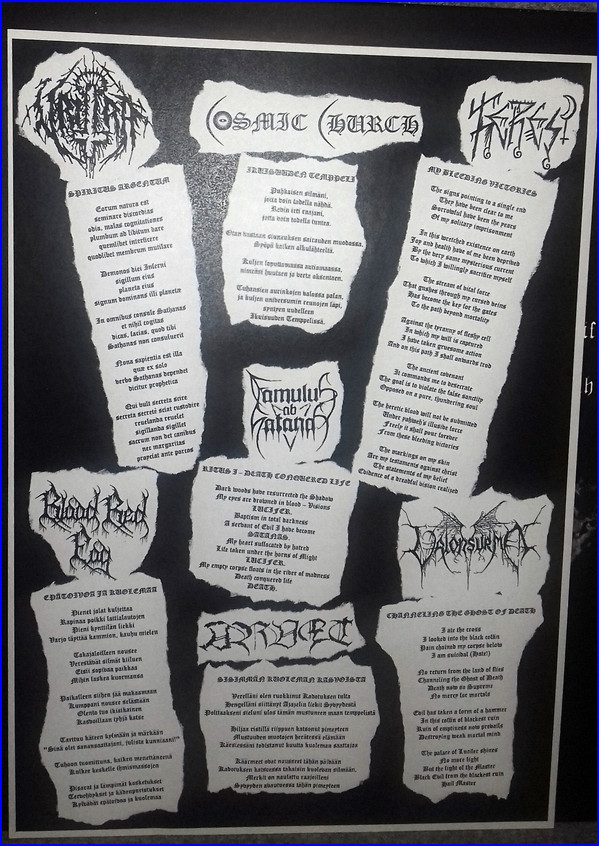 COSMIC CHURCH
SPIRITUS ARGENTUM
Eorum natura est
seminare discordias
odia, malas cognitationes
plumbum ad libitum dare
quemlibet interficere
quodlibet membrum mutilare
Demonos dici Inferni
sigillum eius
planeta eius
signum dominans illi planete
In omnibus consule Sathanas
et nihil cogitas
dicas, facias, quod tibi
Sathanas non consuluerit
Nona sapientia est illa
qua ex solo
verbo Sathanas dependet
dicitur prophetica
Qui vult secreta scire
secreta secrete sciat custodire
revelanda revelet
sigillanda sigillet
sacrum non det canibus
nec margaritas
proyciat ante porcos
IKUISUUDEN TEMPPELI
Puhkaisen silmäni,
jotta voin todella nähdä.
Revin irti raajani,
jotta voin todella tuntea.
Otan vastaan siunauksen sairauden muodossa.
Syöpä kaiken alkulähteeltä.
Kuljen loputtomassa autiomaassa,
nimeäni huulesi ja verta oksentaen.
Tuhansien aurinkojen valossa palan,
ja kuljen universumin reunojen läpi,
syntyen uudelleen
Ikuisuuden Temppelissä.
MY BLEEDING VICTORIES
The signs pointing to a single end
They have been clear to me
Sorrowful have been the years
Of my solitary imprisonment
In this wretched existence on earth
Joy and health have of me been deprived
By the very same mysterious current
To which I willingly sacrifice myself
The stream of vital force
That gushes through my cursed veins
Has become the key for the gates
To the path beyond mortality
Against the tyranny of fleshy cell
In which my will is captured
I have taken gruesome action
And on this path I shall onwards trod
The ancient covenant
It commands me to desecrate
The goal is to violate the false sanctity
Opposed on a pure, thundering soul
The heretic blood will not be submitted
Under yahweh's illusive force
Freely it shall pour forever
From these bleeding victories
The markings on my skin
Are my testaments against christ
The statements of my belief
Evidence of a dreadful vision realized
Famulus
ab
Satanas
RITUS I - DEATH CONQUERED LIFE
Dark woods have resurrected the Shadow
My eyes are drowned in blood - Visions
LUCIFER.
Baptism in total darkness
A servant of Evil I have become
SATANAS.
My heart suffocated by hatred
Life taken under the horns of Might
LUCIFER.
My empty corpse floats in the river of madness
Death conquered life
DEATH.
Blood Red
Fog
EPÄTOIVOA JA KUOLEMAA
Pienet jalat kuljettaa
Rapinaa poikki lattialautojen
Pieni kynttilän liekki
Varjo täyttää kammion, kauhu mielen
Takajaloilleen nousee
Verestävät silmät kiiluen
Etsii sopivaa paikkaa
Mihin laskea kuormansa
Paikalleen siihen jää makaamaan
Kumppani nousee selästään
Olento tuo ikiaikainen
Kasvoillaan tyhjä katse
Tarttuu käteen kylmään ja märkään
"Sinä olet sanansaattajani, julista kunniaani!"
Tuhoon tuomittuna, kaiken menettäneenä
Kulkee keskelle ihmismassojen
Pisarat ja lämpimät kosketukset
Tervehdykset ja kädenpuristukset
Kylvävät epätoivoa ja kuolemaa
SISIMMÄN KUOLEMAN KASVOISTA
Verelläni olen ruokkinut Kadotuksen tulta
Hengelläni siittänyt Azazelin liekit Syvyydestä
Polttaakseni sieluni ulos tämän mustuneen maan temppelistä
Hiljaa ristillä riippuen katsonut pimeyteen
Mustuuden muotojen herätessä elämään
Kärsiessäni todistanut kuutta kuoleman saattajaa
Käärmeet ovat nousseet tähän päivään
Kadotuksen katsoessa takaisin kuolevan silmään.
Merkit on naulattu raajoilleni
Syvyyden avautuessa tähän pimeyteen
CHANNELING THE GHOST OF DEATH
I ate the cross
I looked into the black psalm
Pain chained my corpse below
I am suicidal (Hate!)
No return from the land of flies
Channeling the Ghost of Death
Death now so Supreme
No mercy for mortals
Evil has taken a form of a hammer
In this coffin of blackest ruin
Ruin of emptiness now prevails
Destroying weak mortal mind
The palace of Lucifer shines
No more light
But the light of the Master
Black Evil from the blackest ruin
Hail Master